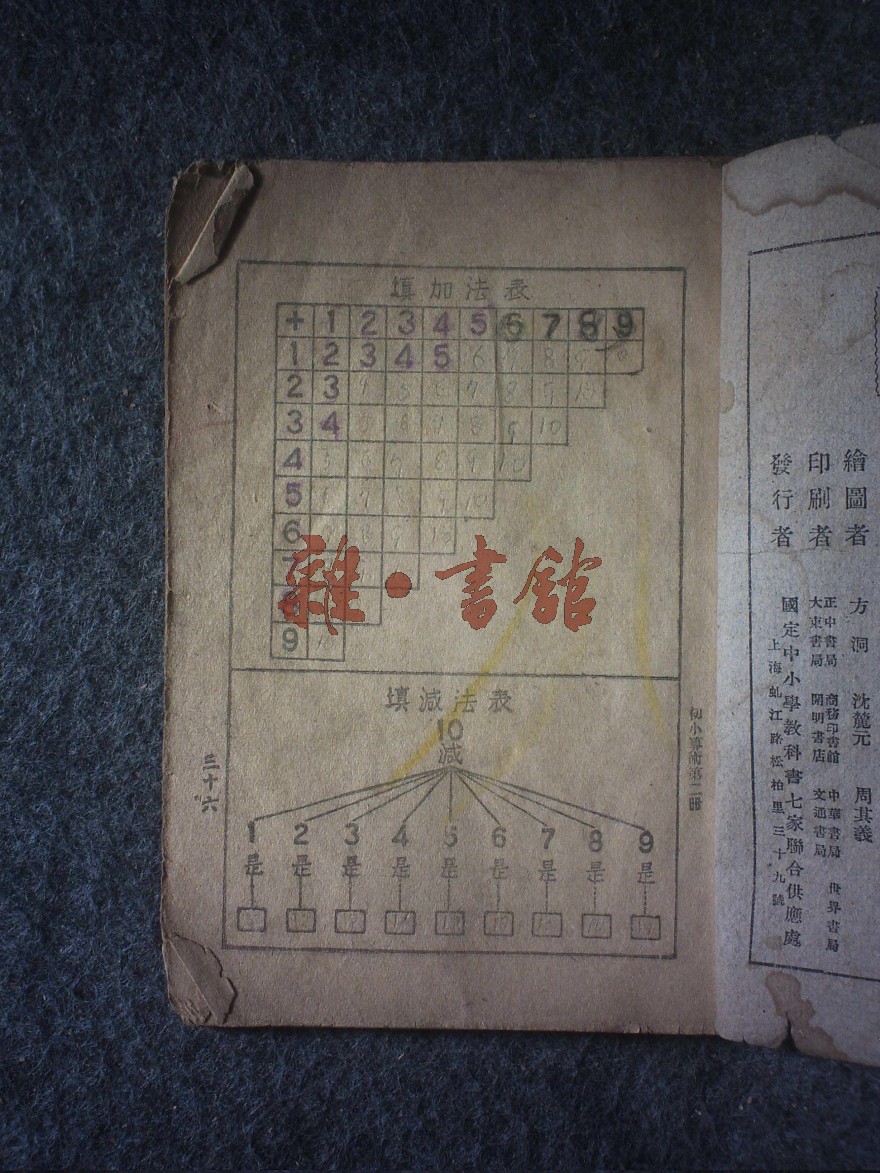 填加法表
+ 1 2 3 4 5 6 7 8 9
1 2 3 4 5 6 7 8 9
2 3 8 9 10
3 4 8 9 10
4 8 9 10
5 9 10
6 9 10
7
8
9
雜·書館
填減法表
10
減
1 2 3 4 5 6 7 8 9
是 是 是 是 是 是 是 是 是
三十六
初小算術第二冊
繪圖者 方洞 沈麓元 周其義
印刷者 正中書局 商務印書館 中華書局 世界書局
大東書局 開明書店 文通書局
發行者 國定中小學教科書七家聯合供應處
上海虬江路松柏里三十九號